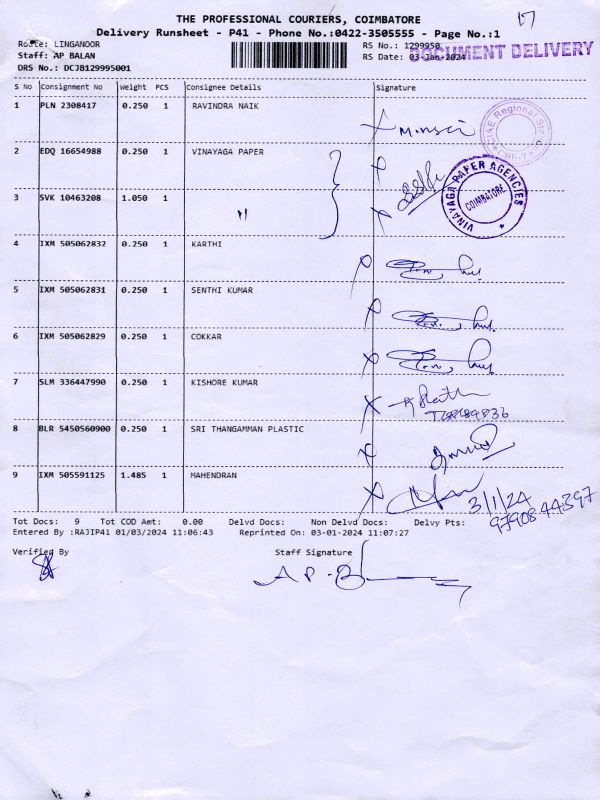 THE PROFESSIONAL COURIERS, COIMBATORE
17
Delivery Runsheet - P41 - Phone No.:0422-3505555 - Page No.:1
Route: LINGANOOR
RS No.: 1299950
DOCUMENT DELIVERY
Staff: AP BALAN
RS Date: 03-Jan-2024
DRS No.: DCJB129995001
S No Consignment No Weight PCS Consignee Details Signature
1 PLN 2308417 0.250 1 RAVINDRA NAIK
2 EDQ 16654988 0.250 1 VINAYAGA PAPER
VINAYAGA PAPER AGENCIES
COIMBATORE
3 SVK 10463208 1.050 1 "
4 IXM 505062832 0.250 1 KARTHI
5 IXM 505062831 0.250 1 SENTHI KUMAR
6 IXM 505062829 0.250 1 COKKAR
7 SLM 336447990 0.250 1 KISHORE KUMAR
8 BLR 5450560900 0.250 1 SRI THANGAMMAN PLASTIC
9 IXM 505591125 1.485 1 MAHENDRAN
3/1/24
97908 44397
Tot Docs: 9 Tot COD Amt: 0.00 Delvd Docs: Non Delvd Docs: Delvy Pts:
Entered By :RAJIP41 01/03/2024 11:06:43 Reprinted On: 03-01-2024 11:07:27
Verified By Staff Signature
A P. B